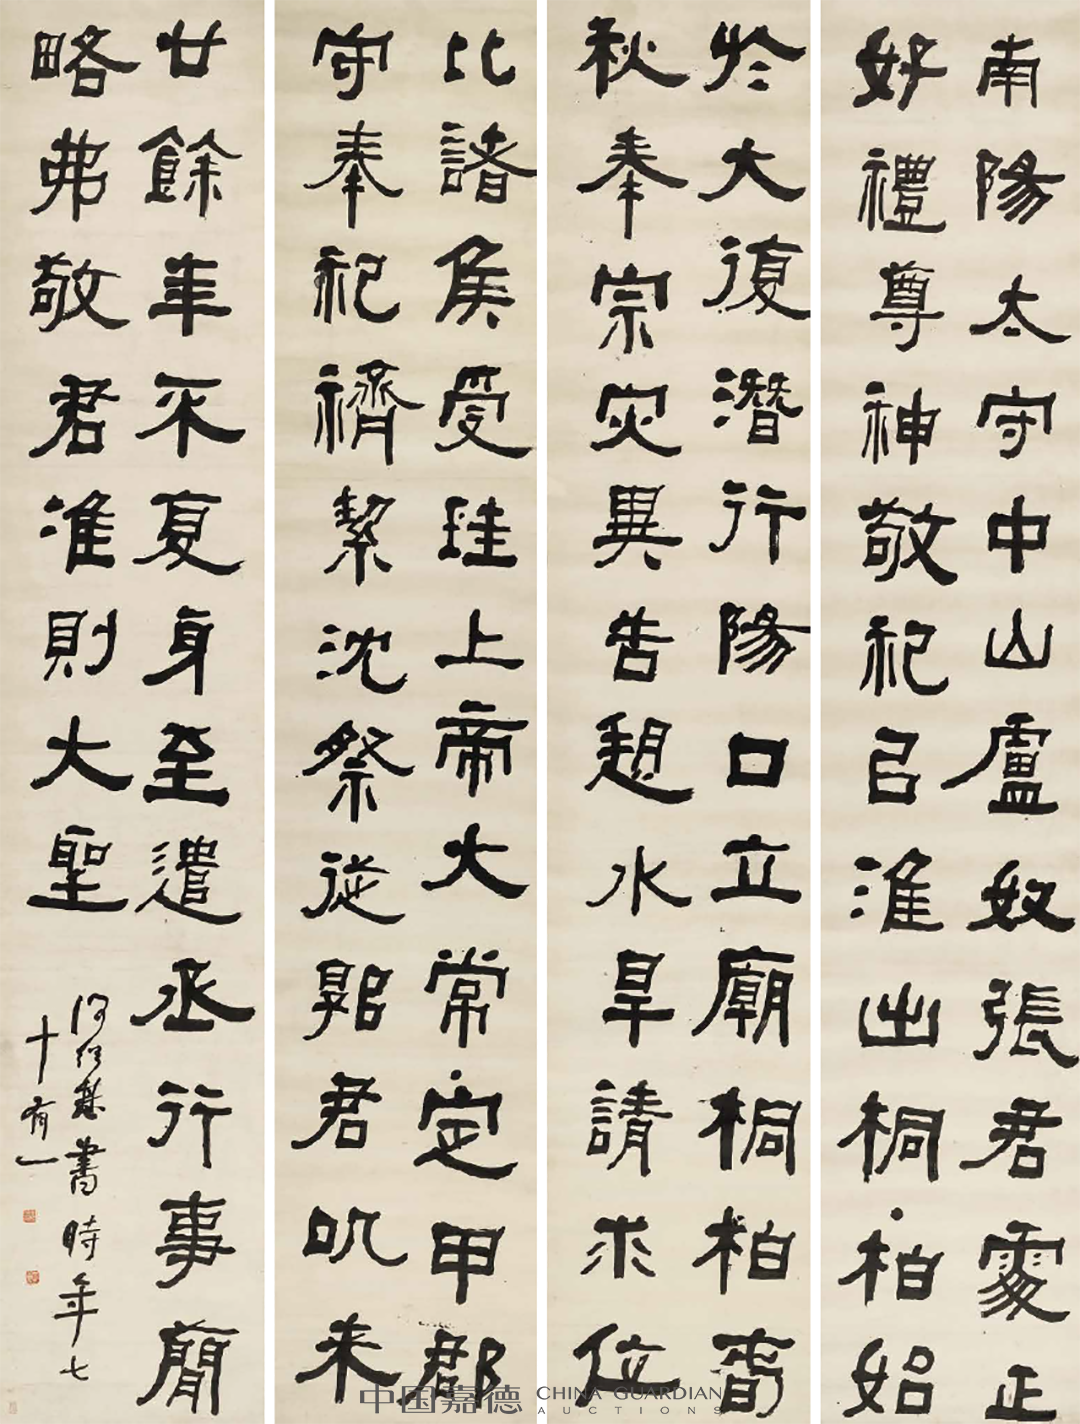 南陽太守中山盧奴張君處正
好禮尊神敬祀以淮出桐柏始
於大復潛行陽口立廟桐柏春
秋奉宗災異告愬水旱請求位
比諸侯受珪上帝大常定甲郡
守奉祀濟絜沈祭從郭君以來
廿餘年不夏身至遣丞行事簡
略弗敬君淮則大聖
何紹基書時年七
十有一
中国嘉德 CHINA GUARDIAN AUCTIONS